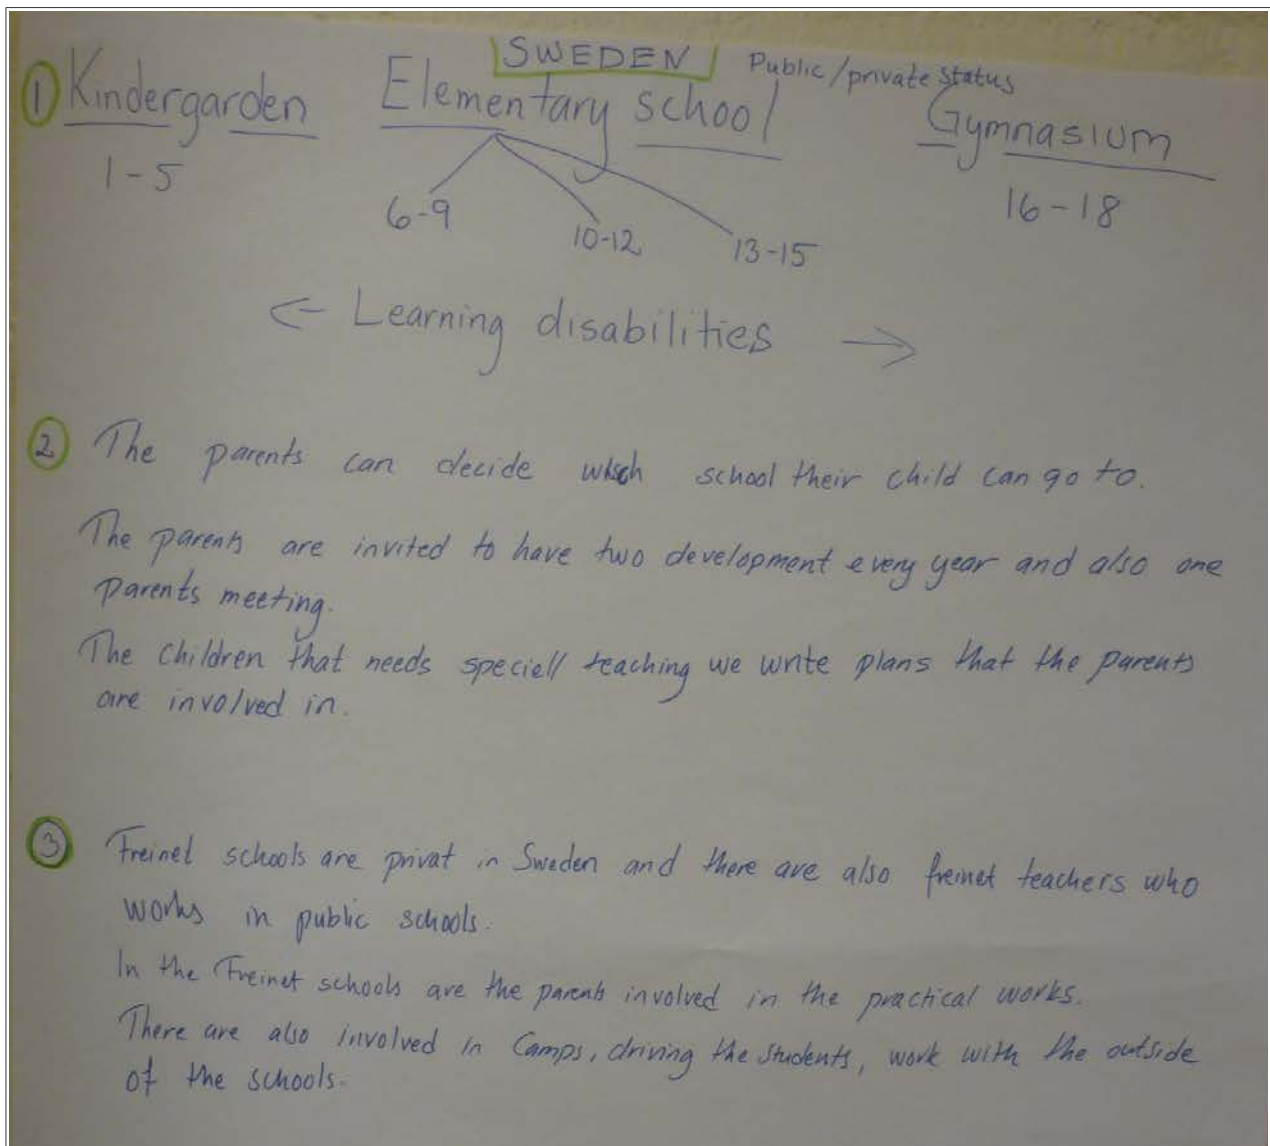 SWEDEN
Public/private status
① Kindergarden Elementary school Gymnasium
1-5 6-9 10-12 13-15 16-18
← Learning disabilities →
② The parents can decide which school their child can go to.
The parents are invited to have two development every year and also one
parents meeting.
The children that needs speciell teaching we write plans that the parents
are involved in.
③ Freinet schools are privat in Sweden and there are also freinet teachers who
works in public schools.
In the Freinet schools are the parents involved in the practical works.
There are also involved in Camps, driving the students, work with the outside
of the schools.